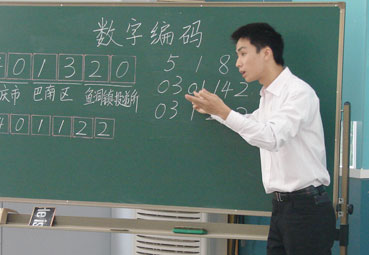 数字编码
0 1 3 2 0
庆市 巴南区 鱼洞镇投递所
0 1 1 2 2
5 1 8
03 0142
03